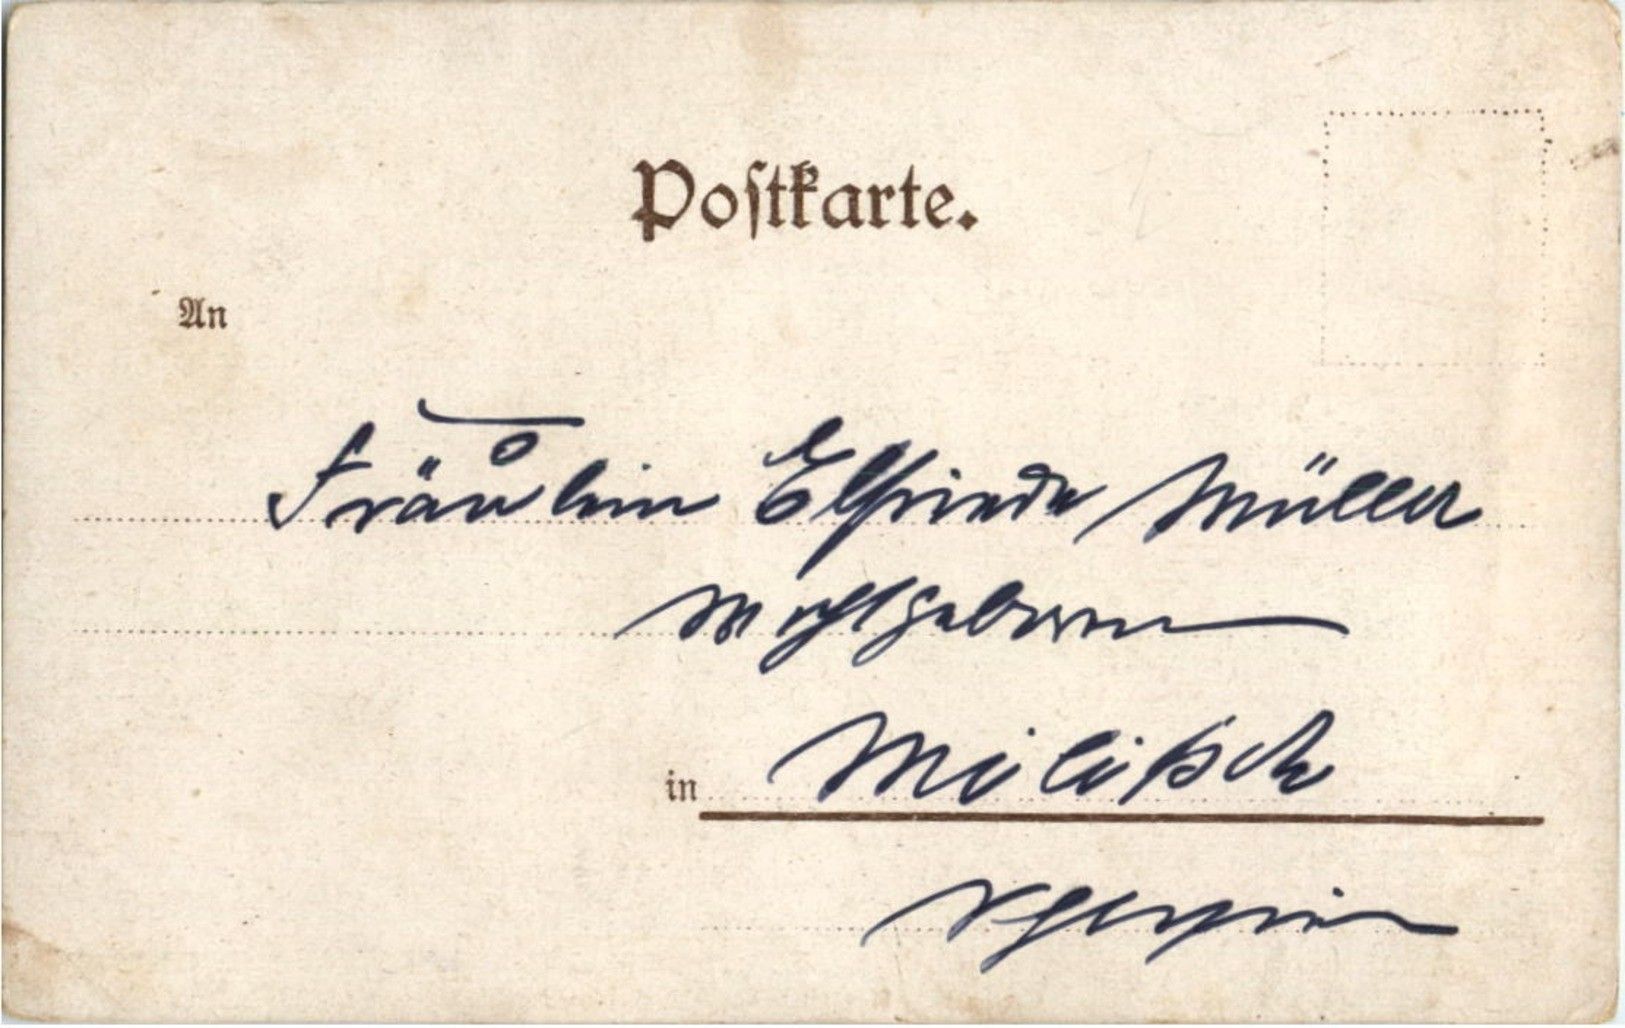 Postkarte.
An
Fräulein Elfriede Müller
Wohlgeboren
in Militsch